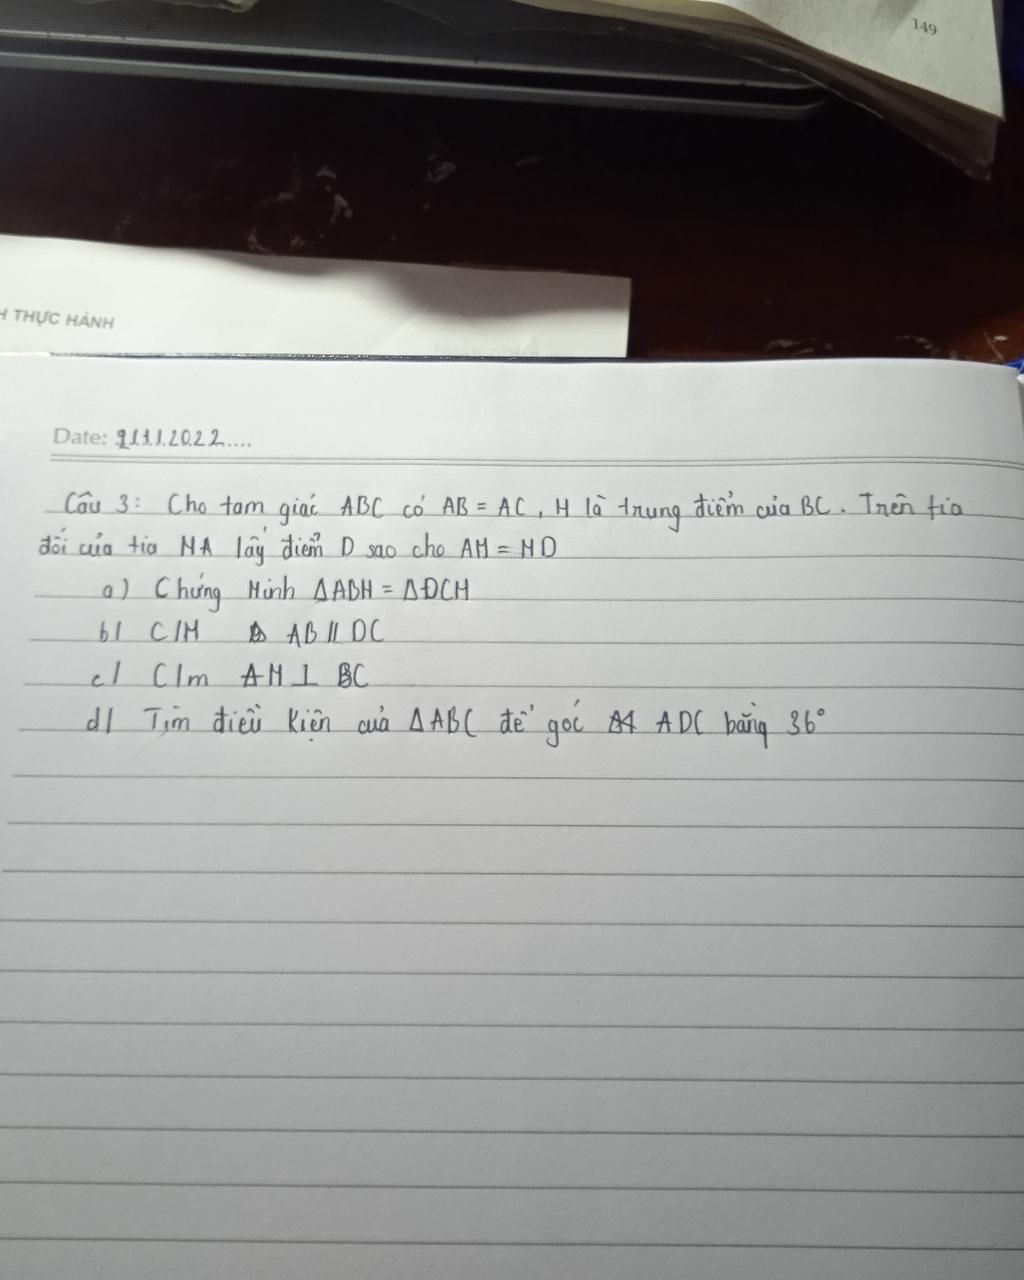 149
H THỰC HÀNH
Date: 211.1.2022....
Câu 3: Cho tam giác ABC có AB = AC, M là trung điểm của BC. Trên tia
đối của tia MA lấy điểm D sao cho AM = MD
a) Chứng Minh ΔABM = ΔĐCM
b/ C/M AB // DC
c/ C/m AM ⊥ BC
d/ Tìm điều kiện của ΔABC để góc ADC bằng 36°